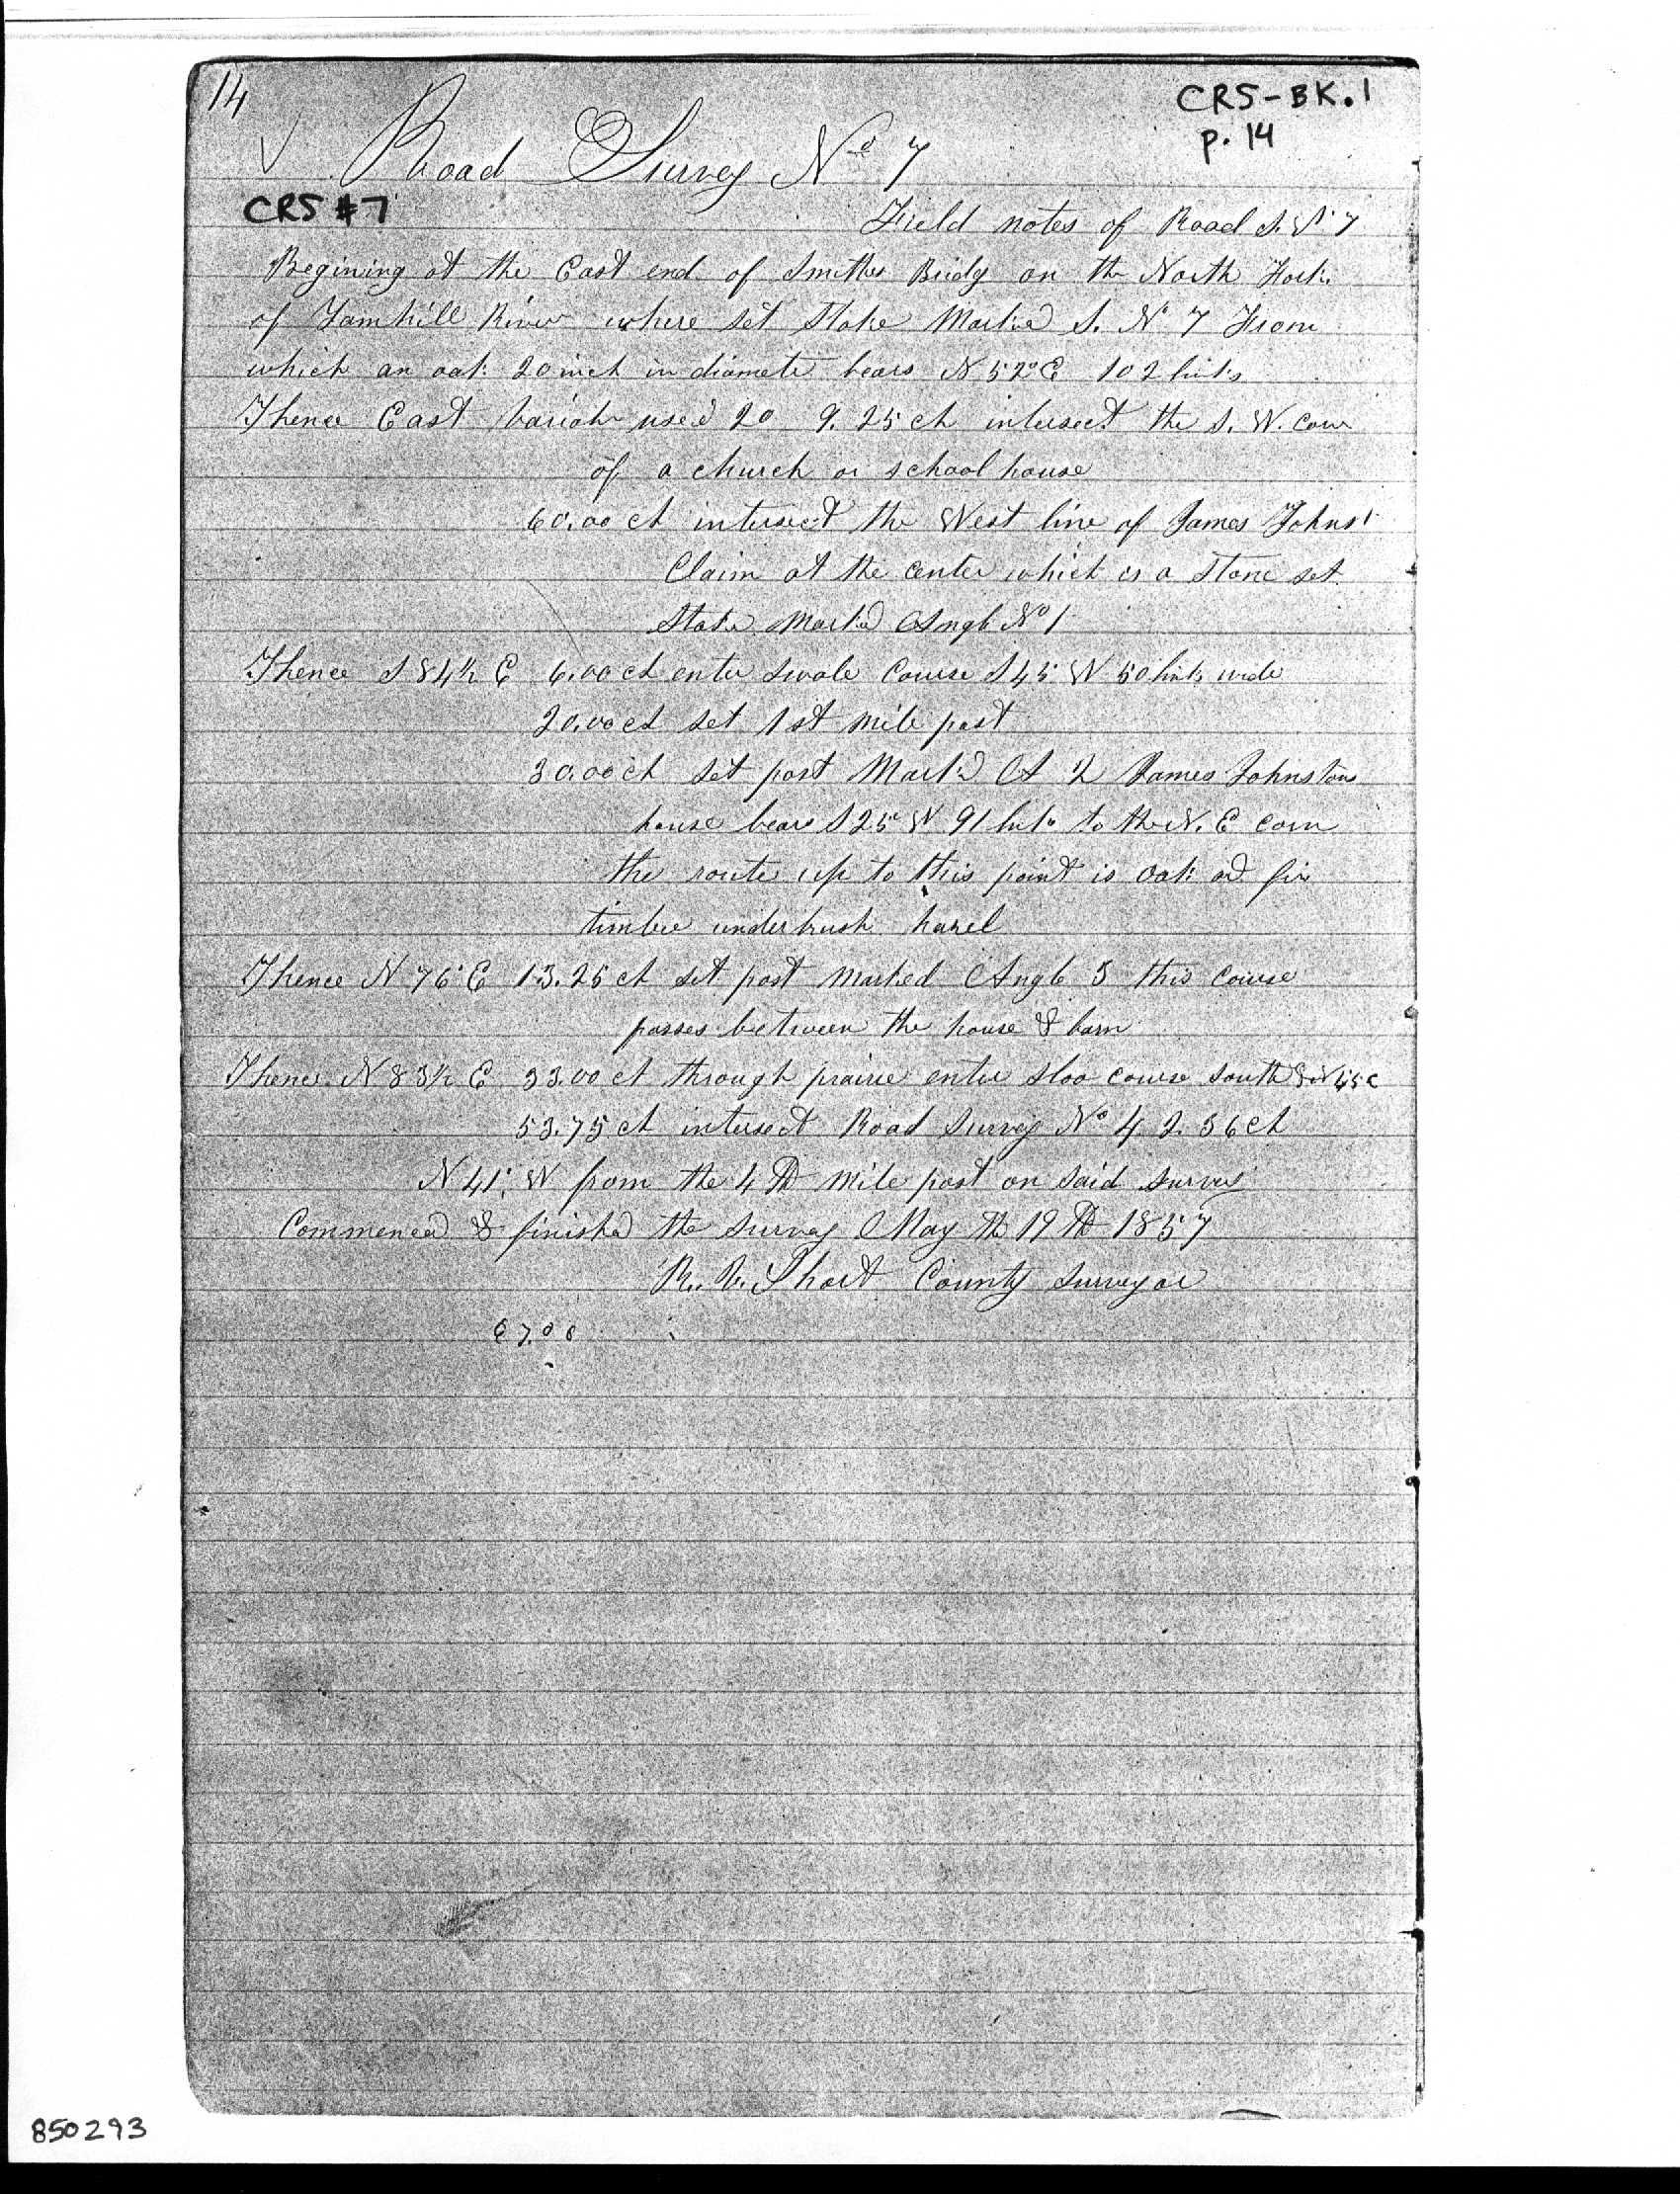 14
CRS-BK.1
p. 14
Road Survey No 7
CRS #7
Field notes of Road S. No 7
Begining at the East end of Smiths Bridg on the North Fork
of Yamhill River where set Stake Marked S. No 7 From
which an oak 20 inch in diameter bears N 52° E 102 links
Thence East used 20 9.25 ch intersect the S. W. Corn
of a church or school house
60.00 ch intersect the West line of James Johns
Claim at the center which is a stone set
Stake Marked Angle No 1
Thence S 84½ E 6.00 ch enter swale Course S 45 W 50 links wide
20.00 ch set 1st mile post
30.00 ch set post Markd A 2 James Johnstons
house bears S 25° W 91 links to the N. E corn
the route up to this point is oak and fir
timber underbrush hazel
Thence N 76° E 13.25 ch set post marked Angle 3 this course
passes between the house & barn
Thence N 83½ E 33.00 ch through prairie enter sloo course south
53.75 ch intersect Road Survey No 4 2.56 ch
N 41° W from the 4th mile post on said survey
Commenced & finished the survey May th 19th 1857
R. V. Short County surveyor
7.00
850293